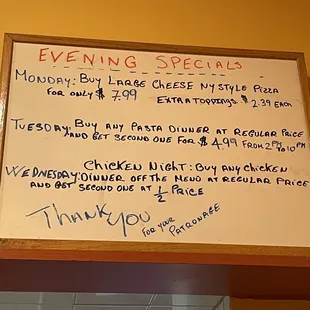 EVENING SPECIALS
MONDAY: BUY LARGE CHEESE NY STYLE PIZZA
FOR ONLY $ 7.99 EXTRA TOPPINGS $ 2.39 EACH
TUESDAY: BUY ANY PASTA DINNER AT REGULAR PRICE
AND GET SECOND ONE FOR $ 4.99 FROM 2 PM TO 10 PM
CHICKEN NIGHT: BUY ANY CHICKEN
WEDNESDAY: DINNER OFF THE MENU AT REGULAR PRICE
AND GET SECOND ONE AT 1/2 PRICE
THANK YOU
FOR YOUR PATRONAGE